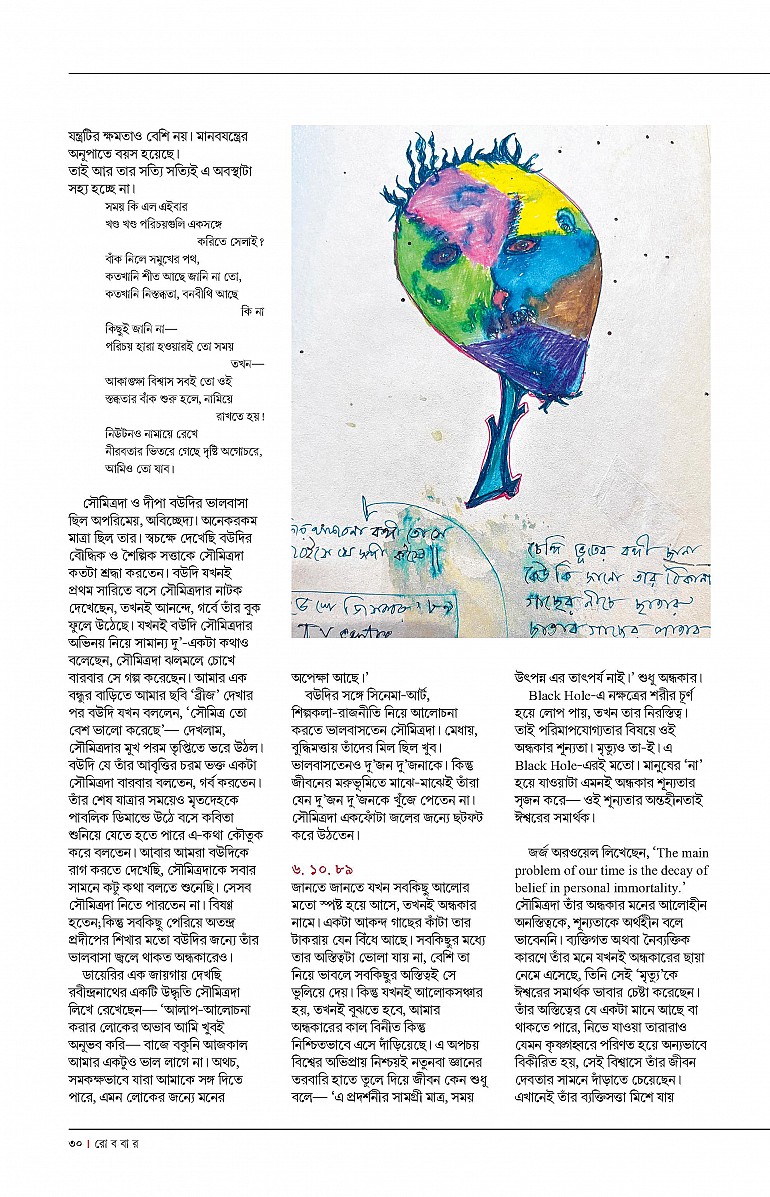 যন্ত্রটির ক্ষমতাও বেশি নয়। মানবযন্ত্রের
অনুপাতে বয়স হয়েছে।
তাই আর তার সত্যি সত্যিই এ অবস্থাটা
সহ্য হচ্ছে না।
সময় কি এল এইবার
খণ্ড খণ্ড পরিচয়গুলি একসঙ্গে
করিতে সেলাই?
বাঁক নিলে সমুখের পথ,
কতখানি শীত আছে জানি না তো,
কতখানি নিস্তব্ধতা, বনবীথি আছে
কি না
কিছুই জানি না—
পরিচয় হারা হওয়ারই তো সময়
তখন—
আকাঙ্ক্ষা বিশ্বাস সবই তো ওই
স্তব্ধতার বাঁক শুরু হলে, নামিয়ে
রাখতে হয়!
নিউটনও নামায়ে রেখে
নীরবতার ভিতরে গেছে দৃষ্টি অগোচরে,
আমিও তো যাব।
সৌমিত্রদা ও দীপা বউদির ভালবাসা
ছিল অপরিমেয়, অবিচ্ছেদ্য। অনেকরকম
মাত্রা ছিল তার। স্বচক্ষে দেখেছি বউদির
বৌদ্ধিক ও শৈল্পিক সত্তাকে সৌমিত্রদা
কতটা শ্রদ্ধা করতেন। বউদি যখনই
প্রথম সারিতে বসে সৌমিত্রদার নাটক
দেখেছেন, তখনই আনন্দে, গর্বে তাঁর বুক
ফুলে উঠেছে। যখনই বউদি সৌমিত্রদার
অভিনয় নিয়ে সামান্য দু'-একটা কথাও
বলেছেন, সৌমিত্রদা ঝলমলে চোখে
বারবার সে গল্প করেছেন। আমার এক
বন্ধুর বাড়িতে আমার ছবি 'ব্রীজ' দেখার
পর বউদি যখন বললেন, 'সৌমিত্র তো
বেশ ভালো করেছে'— দেখলাম,
সৌমিত্রদার মুখ পরম তৃপ্তিতে ভরে উঠল।
বউদি যে তাঁর আবৃত্তির চরম ভক্ত একটা
সৌমিত্রদা বারবার বলতেন, গর্ব করতেন।
তাঁর শেষ যাত্রার সময়েও মৃতদেহকে
পাবলিক ডিমান্ডে উঠে বসে কবিতা
শুনিয়ে যেতে হতে পারে এ-কথা কৌতুক
করে বলতেন। আবার আমরা বউদিকে
রাগ করতে দেখেছি, সৌমিত্রদাকে সবার
সামনে কটু কথা বলতে শুনেছি। সেসব
সৌমিত্রদা নিতে পারতেন না। বিষণ্ণ
হতেন;কিন্তু সবকিছু পেরিয়ে অতন্দ্র
প্রদীপের শিখার মতো বউদির জন্যে তাঁর
ভালবাসা জ্বলে থাকত অন্ধকারেও।
ডায়েরির এক জায়গায় দেখছি
রবীন্দ্রনাথের একটি উদ্ধৃতি সৌমিত্রদা
লিখে রেখেছেন— 'আলাপ-আলোচনা
করার লোকের অভাব আমি খুবই
অনুভব করি— বাজে বকুনি আজকাল
আমার একটুও ভাল লাগে না। অথচ,
সমকক্ষভাবে যারা আমাকে সঙ্গ দিতে
পারে, এমন লোকের জন্যে মনের
চেঙ্গি ভূতের বঙ্গী ছানা
কেউ কি জানো তার ঠিকানা
গাছের নীচে ছাতার
ছাতার গাছের পাতার
TV centre
অপেক্ষা আছে।'
বউদির সঙ্গে সিনেমা-আর্ট,
শিল্পকলা-রাজনীতি নিয়ে আলোচনা
করতে ভালবাসতেন সৌমিত্রদা। মেধায়,
বুদ্ধিমত্তায় তাঁদের মিল ছিল খুব।
ভালবাসতেনও দু'জন দু'জনাকে। কিন্তু
জীবনের মরুভূমিতে মাঝে-মাঝেই তাঁরা
যেন দু'জন দু'জনকে খুঁজে পেতেন না।
সৌমিত্রদা একফোঁটা জলের জন্যে ছটফট
করে উঠতেন।
৬. ১০. ৮৯
জানতে জানতে যখন সবকিছু আলোর
মতো স্পষ্ট হয়ে আসে, তখনই অন্ধকার
নামে। একটা আকন্দ গাছের কাঁটা তার
টাকরায় যেন বিঁধে আছে। সবকিছুর মধ্যে
তার অস্তিত্বটা ভোলা যায় না, বেশি তা
নিয়ে ভাবলে সবকিছুর অস্তিত্বই সে
ভুলিয়ে দেয়। কিন্তু যখনই আলোকসঞ্চার
হয়, তখনই বুঝতে হবে, আমার
অন্ধকারের কাল বিনীত কিন্তু
নিশ্চিতভাবে এসে দাঁড়িয়েছে। এ অপচয়
বিশ্বের অভিপ্রায় নিশ্চয়ই নতুনবা জ্ঞানের
তরবারি হাতে তুলে দিয়ে জীবন কেন শুধু
বলে— 'এ প্রদর্শনীর সামগ্রী মাত্র, সময়
উৎপন্ন এর তাৎপর্য নাই।' শুধু অন্ধকার।
Black Hole-এ নক্ষত্রের শরীর চূর্ণ
হয়ে লোপ পায়, তখন তার নিরস্তিত্ব।
তাই পরিমাপযোগ্যতার বিষয়ে ওই
অন্ধকার শূন্যতা। মৃত্যুও তা-ই। এ
Black Hole-এরই মতো। মানুষের 'না'
হয়ে যাওয়াটা এমনই অন্ধকার শূন্যতার
সৃজন করে— ওই শূন্যতার অন্তহীনতাই
ঈশ্বরের সমার্থক।
জর্জ অরওয়েল লিখেছেন, 'The main
problem of our time is the decay of
belief in personal immortality.'
সৌমিত্রদা তাঁর অন্ধকার মনের আলোহীন
অনস্তিত্বকে, শূন্যতাকে অর্থহীন বলে
ভাবেননি। ব্যক্তিগত অথবা নৈব্যক্তিক
কারণে তাঁর মনে যখনই অন্ধকারের ছায়া
নেমে এসেছে, তিনি সেই 'মৃত্যু'কে
ঈশ্বরের সমার্থক ভাবার চেষ্টা করেছেন।
তাঁর অস্তিত্বের যে একটা মানে আছে বা
থাকতে পারে, নিভে যাওয়া তারারাও
যেমন কৃষ্ণগহ্বরে পরিণত হয়ে অন্যভাবে
বিকীরিত হয়, সেই বিশ্বাসে তাঁর জীবন
দেবতার সামনে দাঁড়াতে চেয়েছেন।
এখানেই তাঁর ব্যক্তিসত্তা মিশে যায়
৩০ | রোববার